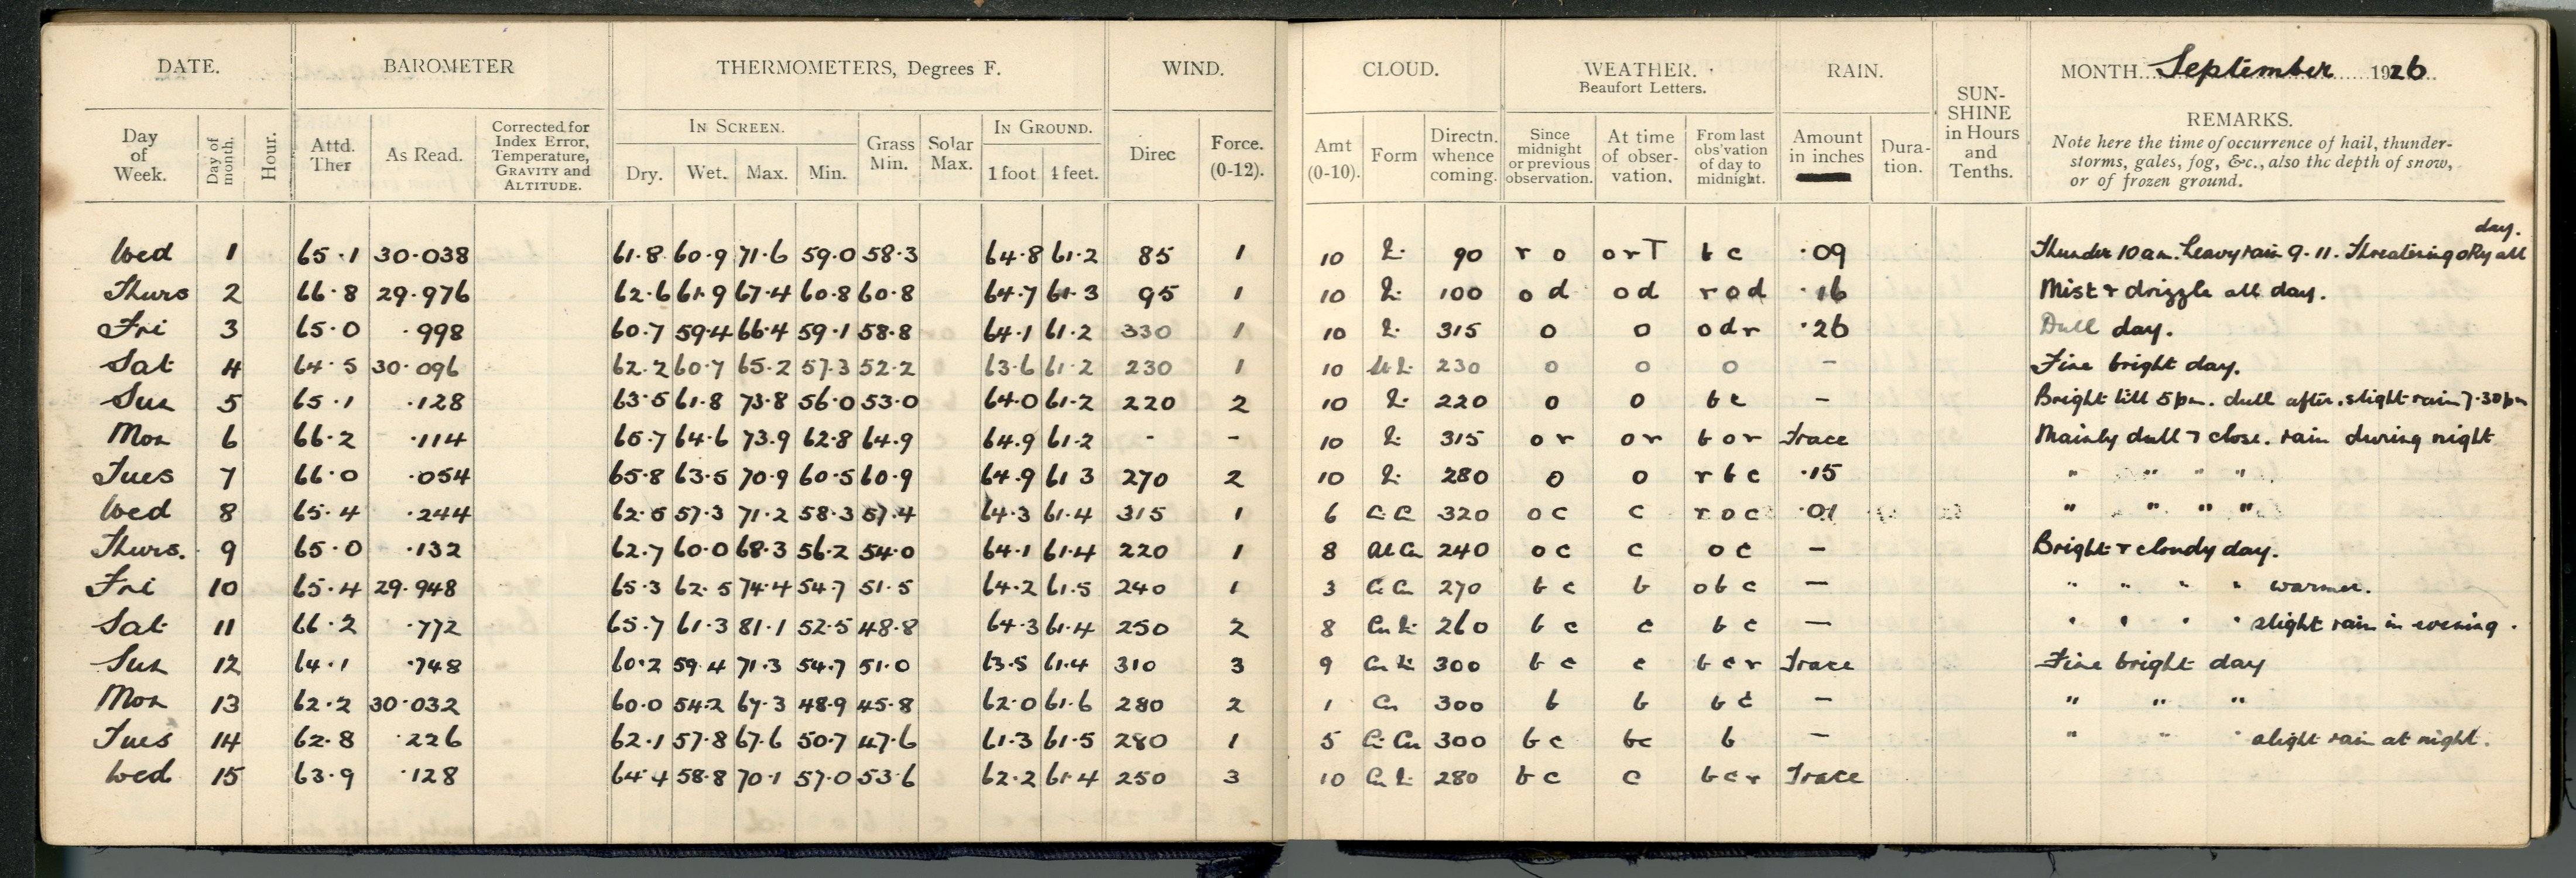 DATE. BAROMETER THERMOMETERS, Degrees F. WIND. CLOUD. WEATHER. Beaufort Letters. RAIN. SUN-SHINE in Hours and Tenths. MONTH September 1926
Day of Week. Day of month. Hour. Attd. Ther As Read. Corrected for Index Error, Temperature, GRAVITY and ALTITUDE. IN SCREEN. Dry. Wet. Max. Min. Grass Min. Solar Max. IN GROUND. 1 foot 4 feet. Direc Force. (0-12). Amt (0-10). Form Directn. whence coming. Since midnight or previous observation. At time of obser-vation. From last obs'vation of day to midnight. Amount in inches Dura-tion. REMARKS.
Note here the time of occurrence of hail, thunder-
storms, gales, fog, &c., also the depth of snow,
or of frozen ground.
Wed 1 65.1 30.038 61.8 60.9 71.6 59.0 58.3 64.8 61.2 85 1 10 90 r o o r T b c .09 Thunder 10 am. heavy rain 9-11. Threatening all day.
Thurs 2 66.8 29.976 62.6 61.9 67.4 60.8 60.8 64.7 61.3 95 1 10 100 o d o d r o d .16 Mist & drizzle all day.
Fri 3 65.0 .998 60.7 59.4 66.4 59.1 58.8 64.1 61.2 330 1 10 315 o o o d r .26 Dull day.
Sat 4 64.5 30.096 62.2 60.7 65.2 57.3 52.2 63.6 61.2 230 1 10 230 o o o - Fine bright day.
Sun 5 65.1 .128 63.5 61.8 73.8 56.0 53.0 64.0 61.2 220 2 10 220 o o b c - Bright till 5 pm. dull after. slight rain 7.30 pm
Mon 6 66.2 .114 65.7 64.6 73.9 62.8 64.9 64.9 61.2 - - 10 315 o r o r b o r Trace Mainly dull & close. rain during night
Tues 7 66.0 .054 65.8 63.5 70.9 60.5 60.9 64.9 61.3 270 2 10 280 o o r b c .15 " " " "
Wed 8 65.4 .244 62.5 57.3 71.2 58.3 57.4 64.3 61.4 315 1 6 320 o c c r o c .01 " " " "
Thurs. 9 65.0 .132 62.7 60.0 68.3 56.2 54.0 64.1 61.4 220 1 8 Al Cu 240 o c c o c - Bright & cloudy day.
Fri 10 65.4 29.948 65.3 62.5 74.4 54.7 51.5 64.2 61.5 240 1 3 Ci Cu 270 b c b o b c - " " " " warmer.
Sat 11 66.2 .772 65.7 61.3 81.1 52.5 48.8 64.3 61.4 250 2 8 260 b c c b c - " " " " slight rain in evening.
Sun 12 64.1 .748 60.2 59.4 71.3 54.7 51.0 63.5 61.4 310 3 9 300 b c c b c r Trace Fine bright day
Mon 13 62.2 30.032 60.0 54.2 67.3 48.9 45.8 62.0 61.6 280 2 1 Cu 300 b b b c - " " "
Tues 14 62.8 .226 62.1 57.8 67.6 50.7 47.6 61.3 61.5 280 1 5 Ci Cu 300 b c bc b - " " " slight rain at night.
Wed 15 63.9 .128 64.4 58.8 70.1 57.0 53.6 62.2 61.4 250 3 10 280 b c c b c r Trace